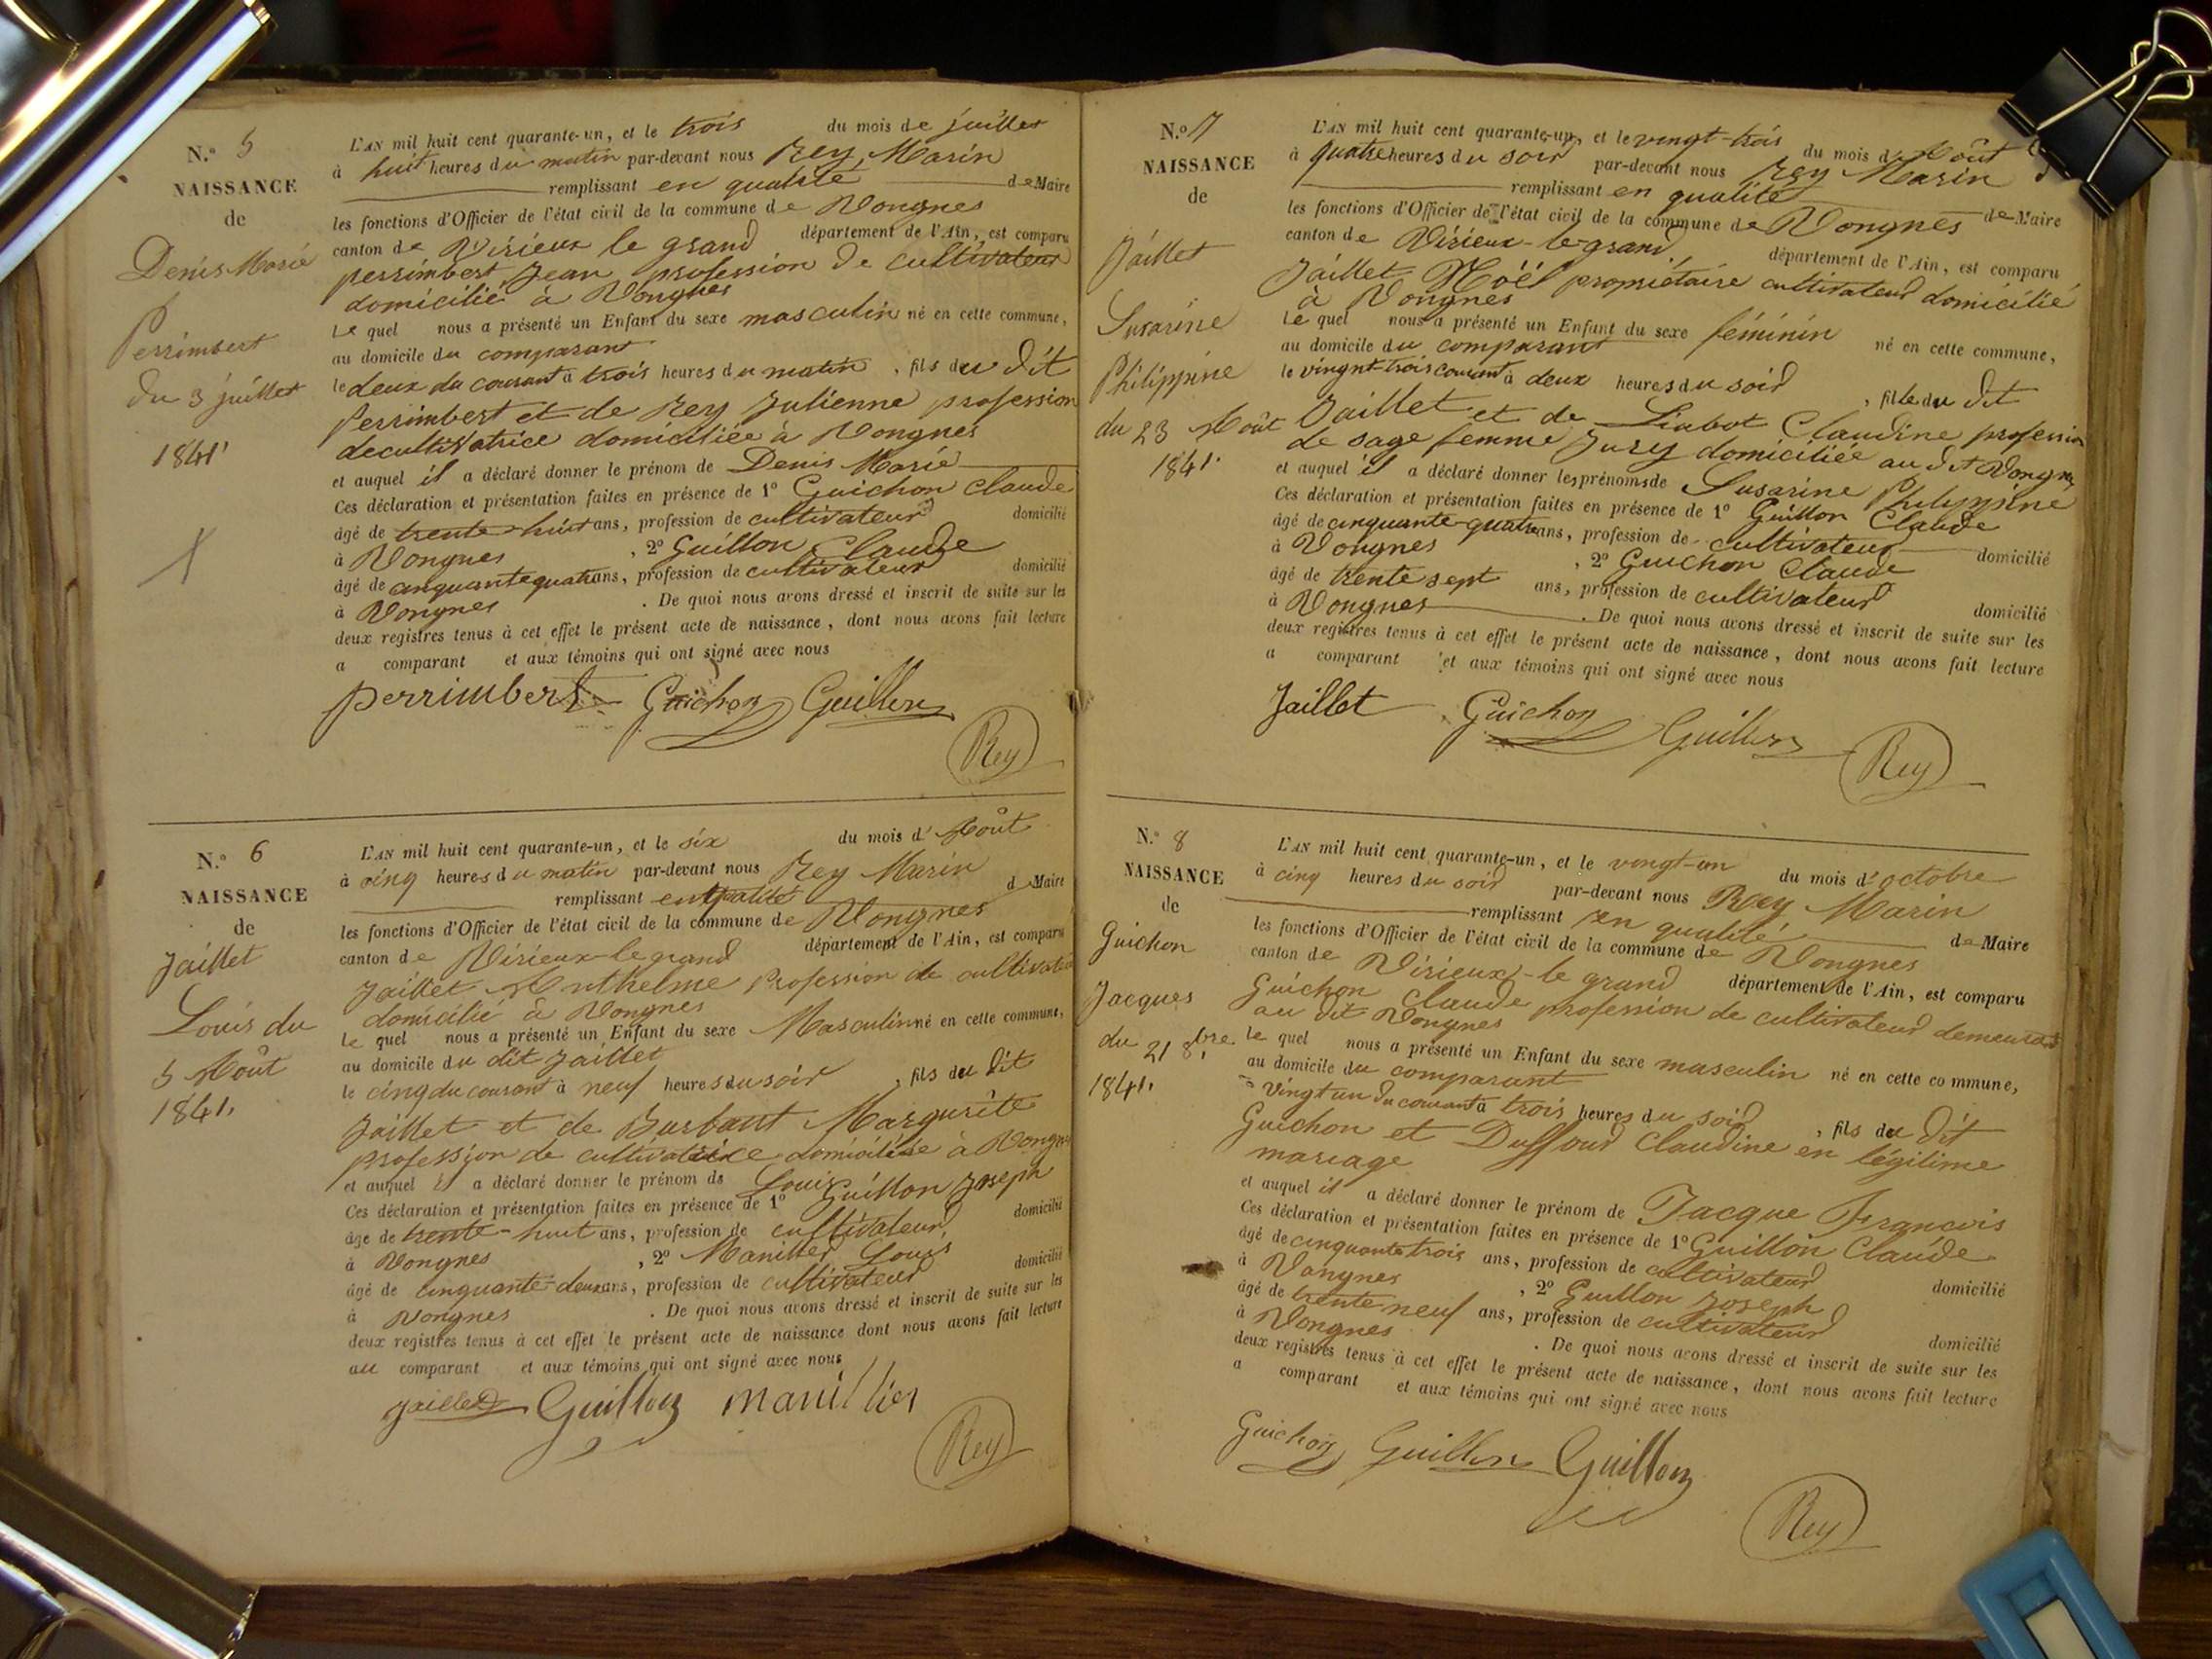 N.º 5
NAISSANCE
de
Denis Marie
Perrimbert
du 3 juillet
1841
L'AN mil huit cent quarante-un, et le trois du mois de juillet
à huit heures du matin par-devant nous Rey Marin
remplissant en qualité de Maire
les fonctions d'Officier de l'état civil de la commune de Vongnes
canton de Virieux le grand département de l'Ain, est comparu
perrimbert Jean profession de cultivateur
domicilié à Vongnes
Le quel nous a présenté un Enfant du sexe masculin né en cette commune,
au domicile du comparant
le deux du courant à trois heures du matin, fils du dit
Perrimbert et de Rey Julienne profession
de cultivatrice domiciliée à Vongnes
et auquel il a déclaré donner le prénom de Denis Marie
Ces déclaration et présentation faites en présence de 1º Guichon Claude
âgé de trente-huit ans, profession de cultivateur domicilié
à Vongnes, 2º Guillon Claude
âgé de cinquante quatre ans, profession de cultivateur domicilié
à Vongnes. De quoi nous avons dressé et inscrit de suite sur les
deux registres tenus à cet effet le présent acte de naissance, dont nous avons fait lecture
a comparant et aux témoins qui ont signé avec nous
perrimbert Guichon Guillon
Rey
N.º 6
NAISSANCE
de
Jaillet
Louis du
5 Août
1841.
L'AN mil huit cent quarante-un, et le six du mois d'Août
à cinq heures du matin par-devant nous Rey Marin
remplissant en qualité de Maire
les fonctions d'Officier de l'état civil de la commune de Vongnes
canton de Virieux-le grand département de l'Ain, est comparu
Jaillet Anthelme Profession de cultivateur
domicilié à Vongnes
Le quel nous a présenté un Enfant du sexe Masculin né en cette commune,
au domicile du dit Jaillet
le cinq du courant à neuf heures du soir, fils du dit
Jaillet et de Marguerite
profession de cultivatrice domiciliée à Vongnes
et auquel il a déclaré donner le prénom de Louis
Ces déclaration et présentation faites en présence de 1º Guillon Joseph
âgé de trente-huit ans, profession de cultivateur, domicilié
à Vongnes, 2º Manillier Louis
âgé de cinquante-deux ans, profession de cultivateur domicilié
à Vongnes. De quoi nous avons dressé et inscrit de suite sur les
deux registres tenus à cet effet le présent acte de naissance dont nous avons fait lecture
au comparant et aux témoins qui ont signé avec nous
Jaillet Guillon manillier
Rey
N.º 7
NAISSANCE
de
Jaillet
Susarine
Philippine
du 23 Août
1841.
L'AN mil huit cent quarante-un, et le vingt-trois du mois d'Août
à quatre heures du soir par-devant nous Rey Marin
remplissant en qualité de Maire
les fonctions d'Officier de l'état civil de la commune de Vongnes
canton de Virieux-le-grand, département de l'Ain, est comparu
Jaillet Noël propriétaire cultivateur domicilié
à Vongnes
Le quel nous a présenté un Enfant du sexe féminin né en cette commune,
au domicile du comparant
le vingnt-trois courant à deux heures du soir, fille du dit
Jaillet et de Claudine profession
de sage femme Jury domiciliée au dit Vongnes
et auquel il a déclaré donner les prénoms de Susarine Philippine
Ces déclaration et présentation faites en présence de 1º Guillon Claude
âgé de cinquante-quatre ans, profession de cultivateur domicilié
à Vongnes, 2º Guichon Claude
âgé de trente sept ans, profession de cultivateur domicilié
à Vongnes. De quoi nous avons dressé et inscrit de suite sur les
deux registres tenus à cet effet le présent acte de naissance, dont nous avons fait lecture
a comparant et aux témoins qui ont signé avec nous
Jaillet Guichon Guillon
Rey
N.º 8
NAISSANCE
de
Guichon
Jacques
du 21 8bre
1841.
L'AN mil huit cent quarante-un, et le vingt-un du mois d'octobre
à cinq heures du soir par-devant nous Rey Marin
remplissant en qualité de Maire
les fonctions d'Officier de l'état civil de la commune de Vongnes
canton de Virieux-le grand département de l'Ain, est comparu
Guichon Claude profession de cultivateur demeurant
au dit Vongnes
le quel nous a présenté un Enfant du sexe masculin né en cette commune,
au domicile du comparant
vingt un du courant à trois heures du soir, fils du dit
Guichon et Duffour Claudine en légitime
mariage
et auquel il a déclaré donner le prénom de Jacque Francois
Ces déclaration et présentation faites en présence de 1º Guillon Claude
âgé de cinquante trois ans, profession de cultivateur domicilié
à Vongnes, 2º Guillon Joseph
âgé de trente neuf ans, profession de cultivateur domicilié
à Vongnes. De quoi nous avons dressé et inscrit de suite sur les
deux registres tenus à cet effet le présent acte de naissance, dont nous avons fait lecture
a comparant et aux témoins qui ont signé avec nous
Guichon Guillon Guillon
Rey